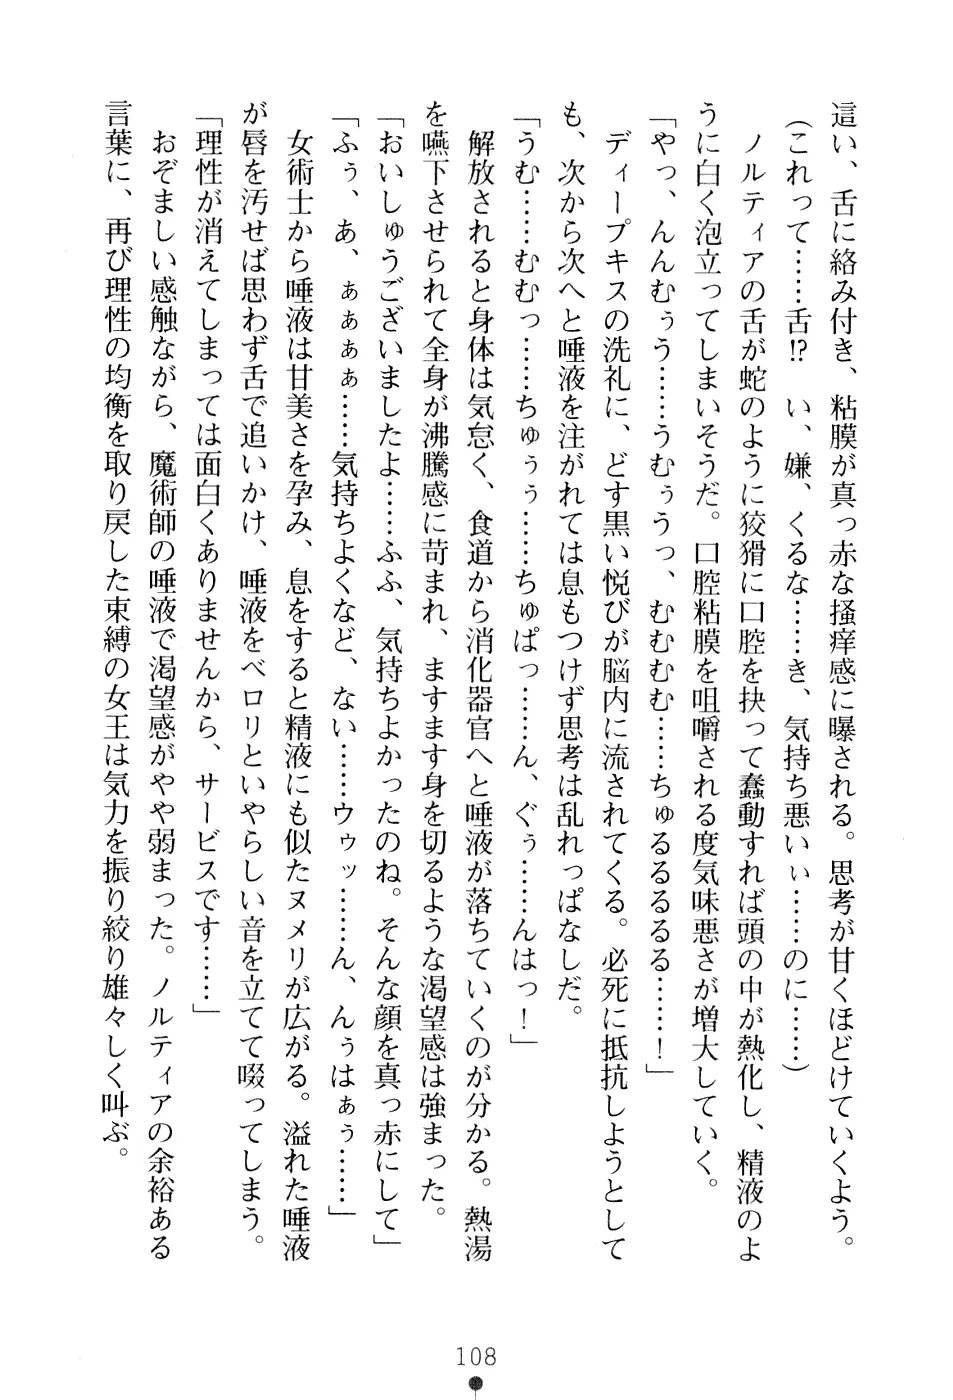 這い、舌に絡み付き、粘膜が真っ赤な掻痒感に曝される。思考が甘くほどけていくよう。
(これって……舌!?　い、嫌、くるな……き、気持ち悪いぃ……のに……)
　ノルティアの舌が蛇のように狡猾に口腔を抉って蠢動すれば頭の中が熱化し、精液のよ
うに白く泡立ってしまいそうだ。口腔粘膜を咀嚼される度気味悪さが増大していく。
「やっ、んんむぅう……うむぅうっ、むむむむ……ちゅるるるるる……！」
　ディープキスの洗礼に、どす黒い悦びが脳内に流されてくる。必死に抵抗しようとして
も、次から次へと唾液を注がれては息もつけず思考は乱れっぱなしだ。
「うむ……むむっ……ちゅぅぅ……ちゅぱっ……ん、ぐぅ……んはっ！」
　解放されると身体は気怠く、食道から消化器官へと唾液が落ちていくのが分かる。熱湯
を嚥下させられて全身が沸騰感に苛まれ、ますます身を切るような渇望感は強まった。
「おいしゅうございましたよ……ふふ、気持ちよかったのね。そんな顔を真っ赤にして」
「ふぅ、あ、ぁぁぁぁ……気持ちよくなど、ない……ウゥッ……ん、んぅはぁぅ……」
　女術士から唾液は甘美さを孕み、息をすると精液にも似たヌメリが広がる。溢れた唾液
が唇を汚せば思わず舌で追いかけ、唾液をベロリといやらしい音を立てて啜ってしまう。
「理性が消えてしまっては面白くありませんから、サービスです……」
　おぞましい感触ながら、魔術師の唾液で渇望感がやや弱まった。ノルティアの余裕ある
言葉に、再び理性の均衡を取り戻した束縛の女王は気力を振り絞り雄々しく叫ぶ。
108